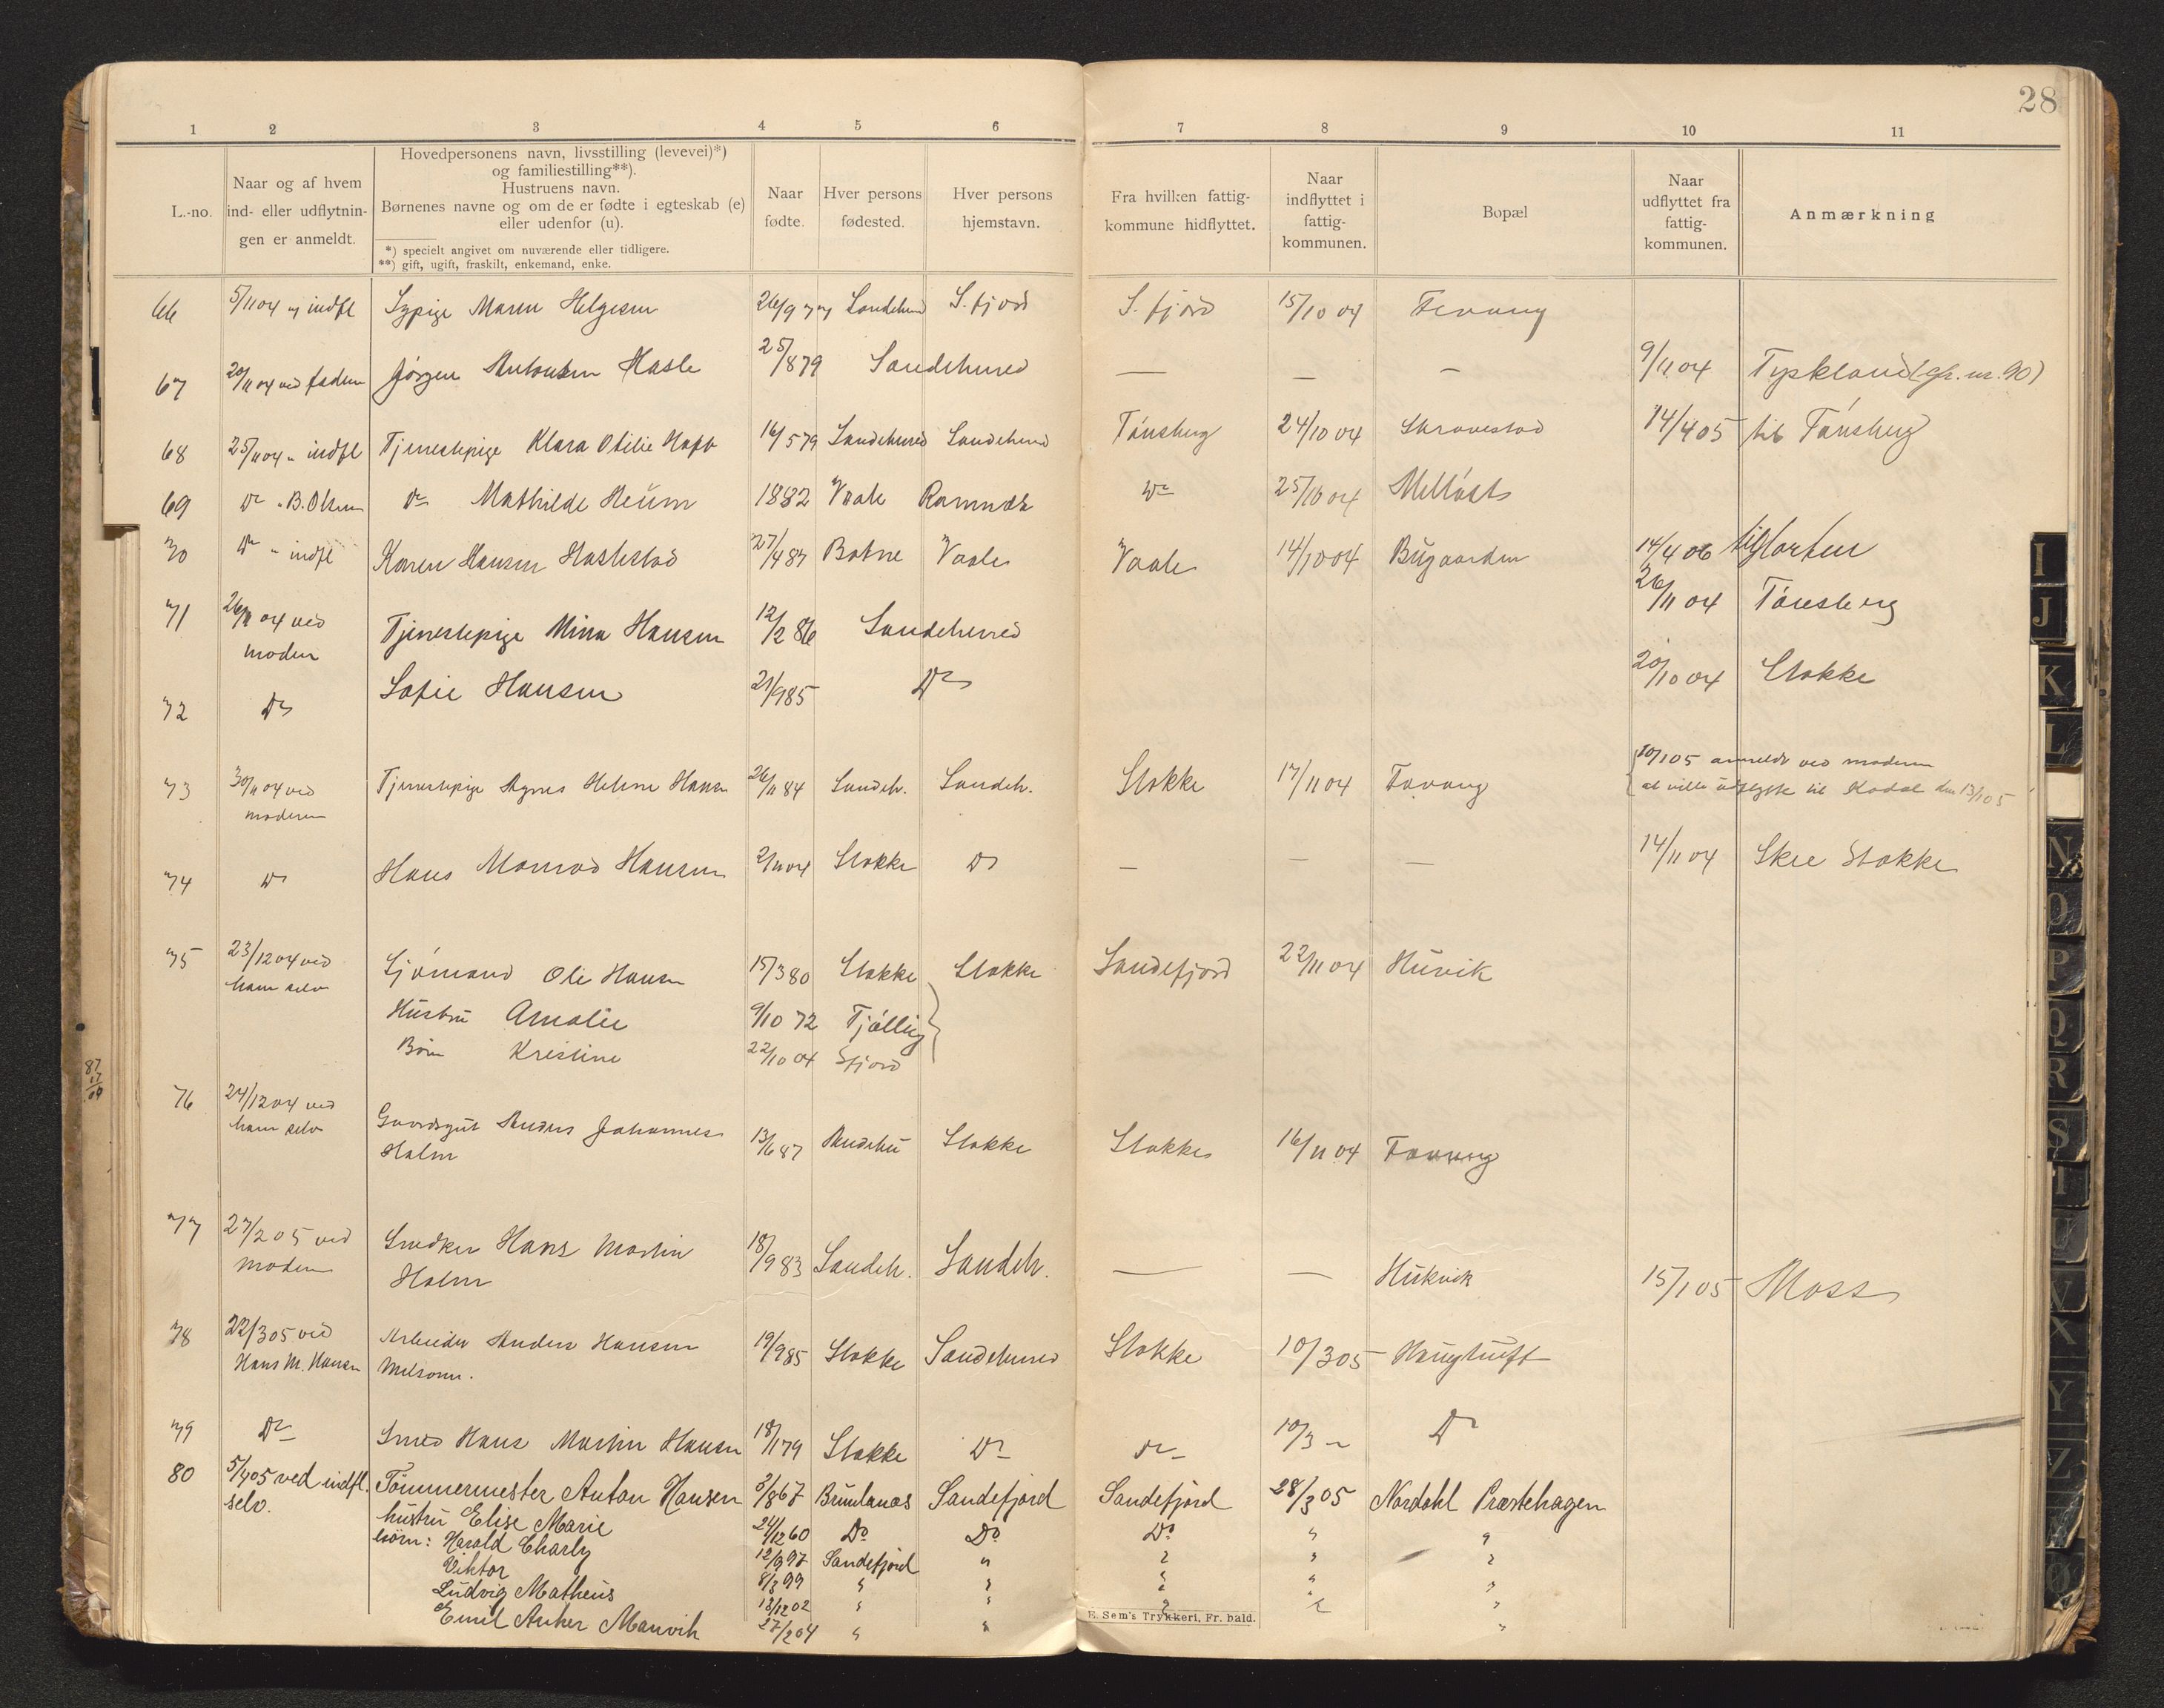 28
1 2 3 4 5 6 7 8 9 10 11
L.-no.
Naar og af hvem
ind- eller udflytnin-
gen er anmeldt.
Hovedpersonens navn, livsstilling (levevei)*)
og familiestilling**).
Hustruens navn.
Børnenes navne og om de er fødte i egteskab (e)
eller udenfor (u).
*) specielt angivet om nuværende eller tidligere.
**) gift, ugift, fraskilt, enkemand, enke.
Naar
fødte.
Hver persons
fødested.
Hver persons
hjemstavn.
Fra hvilken fattig-
kommune hidflyttet.
Naar
indflyttet i
fattig-
kommunen.
Bopæl
Naar
udflyttet fra
fattig-
kommunen.
Anmærkning
66 5/11 04 indfl Sypige Maren Helgesen 26/9 77 Sandeherred S. fjord S. fjord 15/10 04 Fevang
67 20/11 04 ved faderen Jørgen Antonsen Hasle 25/8 79 Sandeherred — — — 9/11 04 Tyskland (cfr. nr. 90)
68 25/11 04 " indfl Tjenestepige Klara Otilie 16/5 79 Sandeherred Sandeherred Tønsberg 24/10 04 Skravestad 14/4 05 til Tønsberg
69 Do " B. Olsen Do Mathilde Heum 1882 Vaale Ramnæs Do 25/10 04
70 Do " indfl Karen Hansen Haslestad 27/4 87 Botne Vaale Vaale 14/10 04 Bugaarden 14/4 06 til Horten
71 26/11 04 ved Tjenestepige Mina Hansen 12/2 86 Sandeherred 26/11 04 Tønsberg
moderen
72 Do Sofie Hansen 21/9 85 Do 20/10 04 Stokke
73 30/11 04 ved Tjenestepige Agnes Helene Hansen 26/11 84 Sandeh. Sandeh. Stokke 17/11 04 Fevang 10/1 05 anmeldt ved moderen
moderen at ville udflytte til Kodal den 13/1 05
74 Do Hans Monrad Hansen 2/11 04 Stokke Do — — — 14/11 04 Skee Stokke
75 23/12 04 ved Sjømand Ole Hansen 15/3 80 Stokke Stokke Sandefjord 22/11 04 Huvik
ham selv
Hustru Amalie 9/10 72 Tjølling
Børn Kristine 22/10 04 Sfjord
87
17
04
76 24/12 04 ved Gaardsgut Anders Johannes
ham selv Holm 13/6 87 Stokke Stokke 16/11 04 Fevang
77 27/2 05 ved Snedker Hans Martin 18/9 83 Sandeh. Sandeh. — — Hukvik 15/1 05 Moss
Moderen Holm
78 22/3 05 ved Arbeider Anders Hansen 19/9 85 Stokke Sandeherred Stokke 10/3 05 Haugtuft
Hans M. Hansen Melsom.
79 Do Smed Hans Martin Hansen 18/1 79 Stokke Do Do 10/3 " Do
80 5/4 05 ved indfl. Tömmermester Anton Hansen 3/8 67 Brunlanæs Sandefjord Sandefjord 28/3 05 Nordahl Præstehagen
selv. hustru Elise Marie 24/12 60 Do Do Do " "
börn: Harald Charly 12/9 97 Sandefjord " " " "
Viktor 8/3 99 " " " " "
Ludvig Matheus 18/12 02 " " " " "
Emil Anker Marvik 27/2 04 " " "
E. Sem's Trykkeri, Fr. hald.
I
J
K
L
N
O
P
Q
R
S
T
U
V
X
Y
Z
Ø